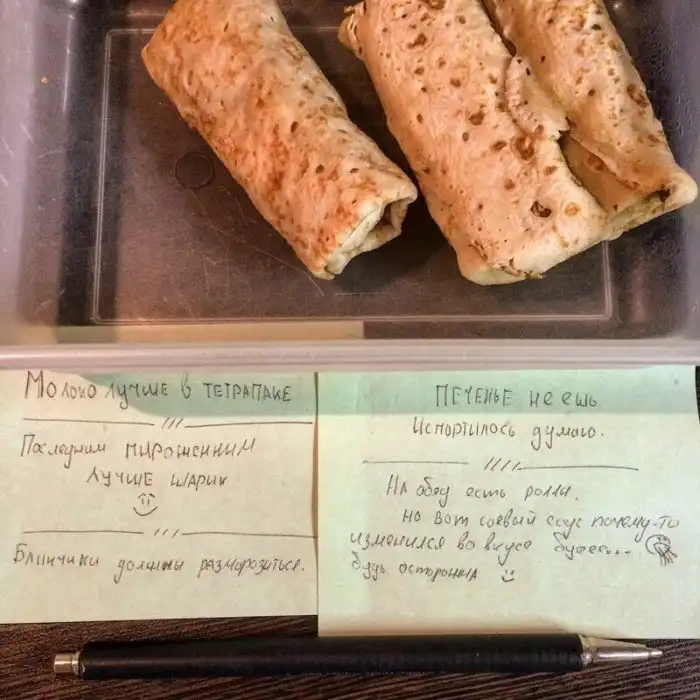 Молоко лучше в ТЕТРАПАКЕ
Последним мороженным
лучше шарик
Блинчики должны разморозиться.
ПЕЧЕНЬЕ не ешь
Испортилось думаю.
На обед есть роллы.
Но вот соевый соус почему-то
изменился во вкусе буеее...
будь осторожна